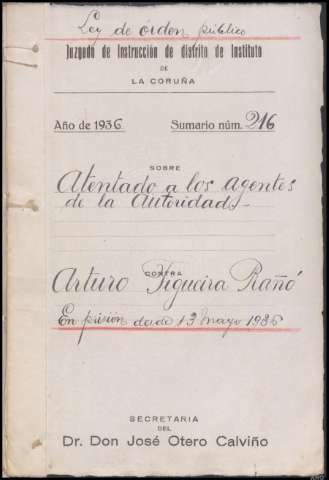 Ley de órden público
Juzgado de Instrucción de distrito de Instituto
DE
LA CORUÑA
Año de 1936 Sumario núm. 216
SOBRE
Atentado a los agentes
de la Autoridad.
CONTRA
Arturo Figueira Rañó
En prisión desde 13 Mayo 1936
SECRETARIA
DEL
Dr. Don José Otero Calviño